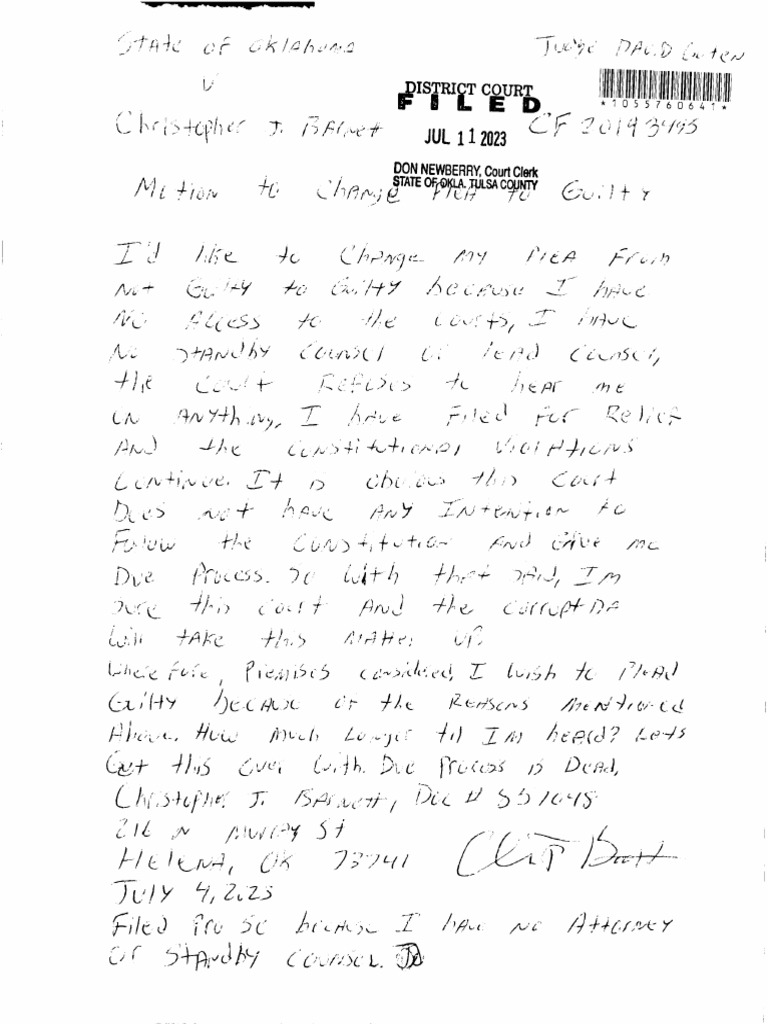 State of Oklahoma Judge David Guten
v
DISTRICT COURT
FILED
*1055760641*
Christopher J. Barnett CF 2019 3495
JUL 11 2023
DON NEWBERRY, Court Clerk
STATE OF OKLA. TULSA COUNTY
Motion to Change Plea to Guilty
I'd like to Change my Plea From
Not Guilty to Guilty because I have
No Access to the courts, I have
No standby counsel or lead counsel,
the court Refuses to hear me
on anything, I have Filed for Relief
And the constitutional violations
Continue. It is obvious this Court
Does not have any Intention to
Follow the Constitution and Give me
Due Process. So with that said, I'm
sure this court And the corrupt DA
Will take this matter up.
Wherefore, Premises considered, I wish to Plead
Guilty because of the Reasons mentioned
Above. How much Longer til I'm heard? Lets
Get this over with. Due Process is Dead.
Christopher J. Barnett, Doc #
216 N Murray St
Helena, OK 73741
July 4, 2023
Filed Pro Se because I have no Attorney
or standby counsel.